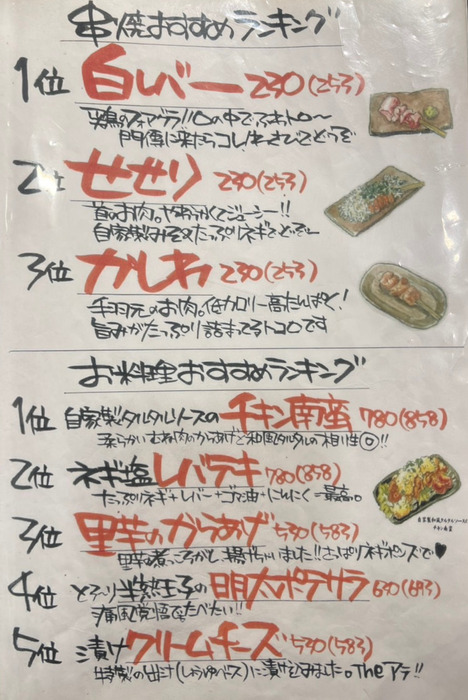 串焼おすすめランキング
1位 白レバー 230(253)
鶏のフォアグラ!!口の中でふわトロ〜
門傳に来たらコレ!わさびでどうぞ
2位 せせり 230(253)
首のお肉。やわらかくてジューシー!!
自家製みそとたっぷりネギでどうぞ〜
3位 かしわ 230(253)
手羽元のお肉。低カロリー高たんぱく!
旨みがたっぷり詰まってるトコロです
お料理おすすめランキング
1位 自家製タルタルソースのチキン南蛮 780(858)
柔らかいむね肉のからあげと和風タルタルの相性◎!!
2位 ネギ塩レバテキ 780(858)
たっぷりネギ+レバー+ゴマ油+にんにく=最高。
自家製和風タルタルソース!
チキン南蛮
3位 里芋のからあげ 530(583)
里芋煮っころがし、揚げちゃいました!!さっぱりネギポンズで♥
4位 とろ〜り半熟玉子の明太ポテサラ 630(693)
痛風覚悟でたべたい!!
5位 漬けクリームチーズ 530(583)
特製の出汁(しょうゆベース)に漬けこみました。Theアテ!!